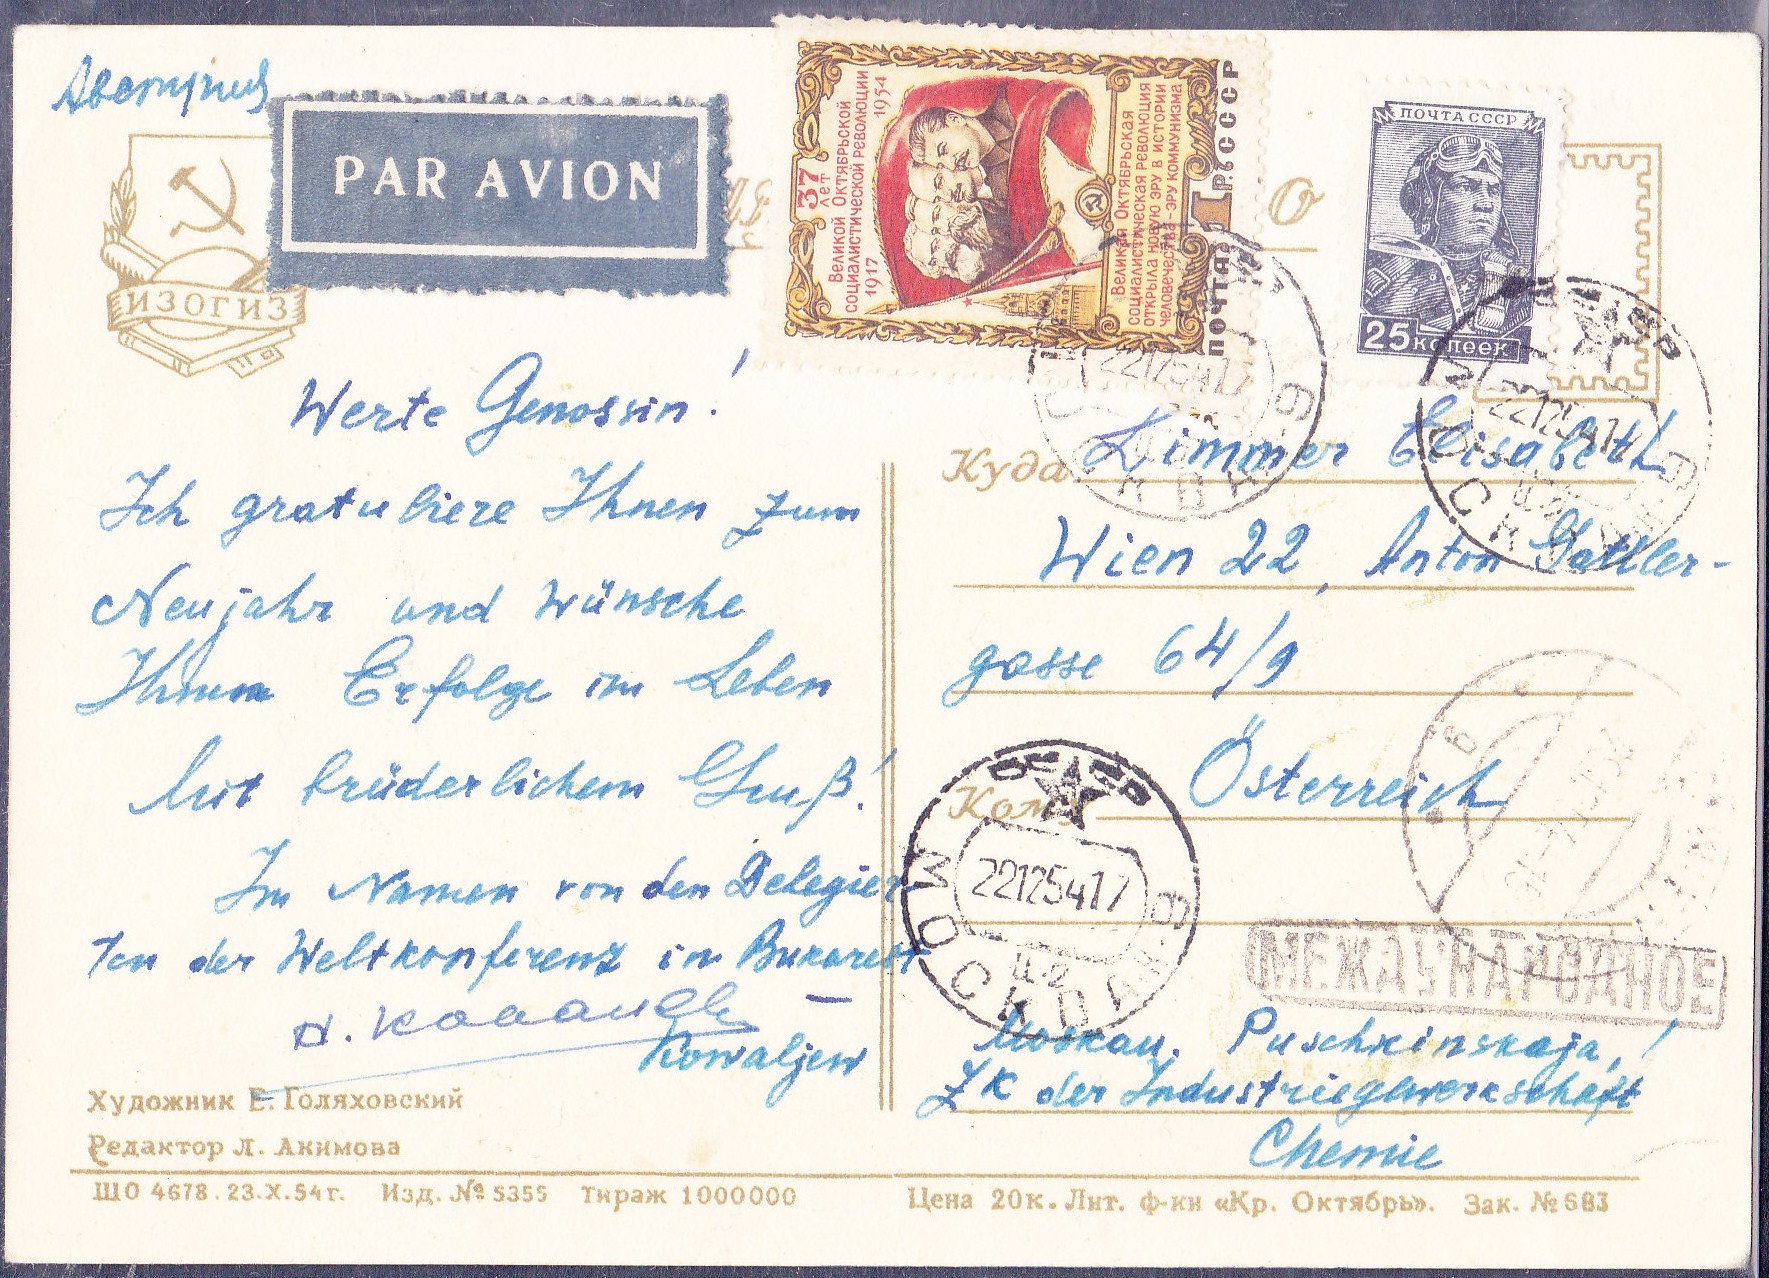 Австрия
PAR AVION
ИЗОГИЗ
37 ЛЕТ
ВЕЛИКОЙ ОКТЯБРЬСКОЙ
СОЦИАЛИСТИЧЕСКОЙ РЕВОЛЮЦИИ
1917 1954
ВЕЛИКАЯ ОКТЯБРЬСКАЯ
СОЦИАЛИСТИЧЕСКАЯ РЕВОЛЮЦИЯ
ОТКРЫЛА НОВУЮ ЭРУ В ИСТОРИИ
ЧЕЛОВЕЧЕСТВА - ЭРУ КОММУНИЗМА
ПОЧТА 1 Р. СССР
ПОЧТА СССР
25 копеек
Werte Genossin!
Ich gratuliere Ihnen zum
Neujahr und wünsche
Ihnen Erfolge im Leben
Mit brüderlichem Gruß!
Im Namen von den Delegier
ten der Weltkonferenz in Bukarest
Kowaljew
Куда Zimmer Elisabeth
Wien 22, Anton Sattler-
gasse 64/9
Österreich
Кому
МОСКВА
22125417
Ц-2
МЕЖДУНАРОДНОЕ
Moskau, Puschkinskaja,
ZK der Industriegewerkschaft
Chemie
Художник Е. Голяховский
Редактор Л. Акимова
ШО 4678. 23.X.54г. Изд. № 5355 Тираж 1000000
Цена 20к. Лит. ф-ки «Кр. Октябрь». Зак. № 683